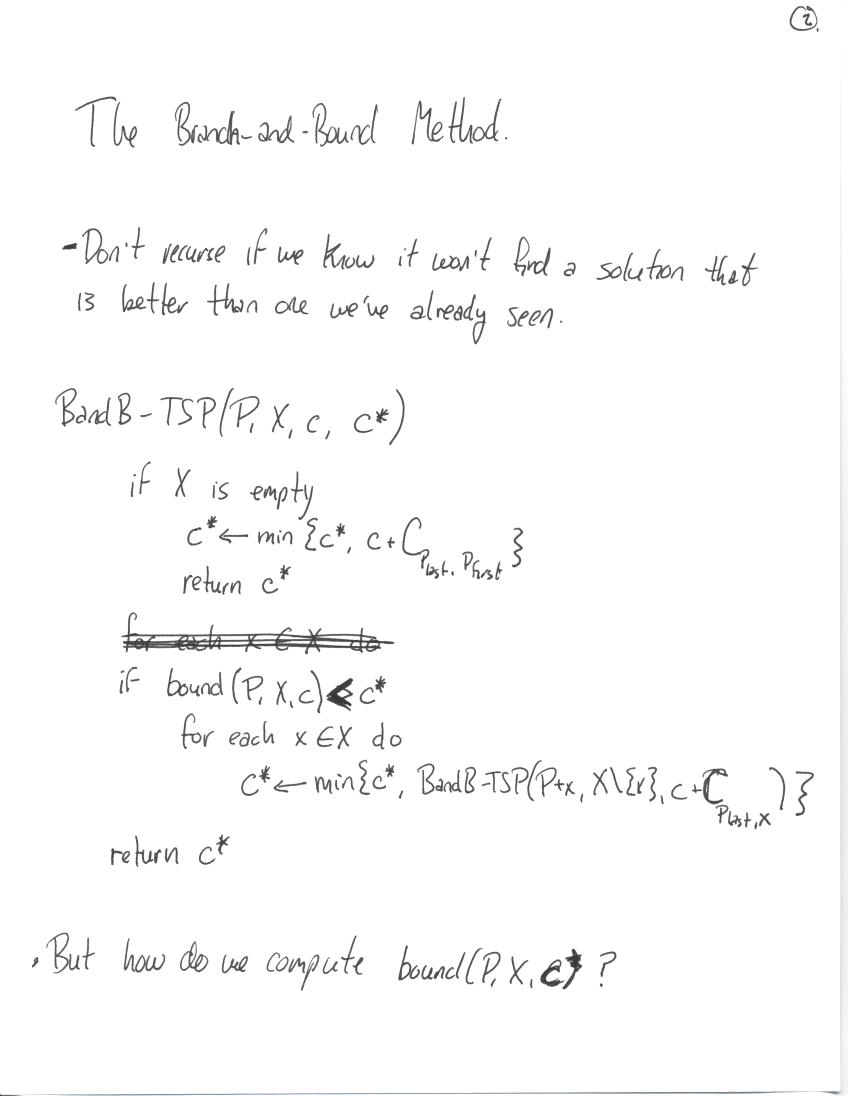 2.
The Branch-and-Bound Method.
- Don't recurse if we know it won't find a solution that
is better than one we've already seen.
BandB-TSP(P, X, c, c*)
if X is empty
c* ← min {c*, c + C Plast, Pfirst }
return c*
for each x ∈ X do
if bound(P, X, c) < c*
for each x ∈ X do
c* ← min{c*, BandB-TSP(P+x, X\{x}, c + C Plast, x )}
return c*
• But how do we compute bound(P, X, c) ?